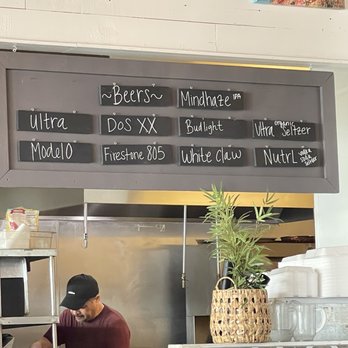 ~Beers~
Mindhaze IPA
Ultra
Dos XX
Budlight
Ultra organic Seltzer
Modelo
Firestone 805
White Claw
Nutrl